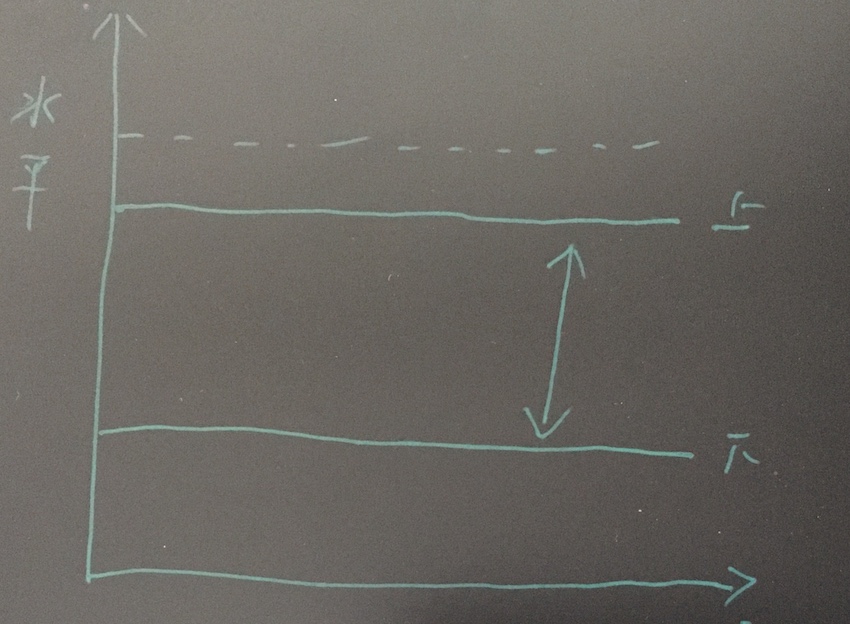 水平
上
下